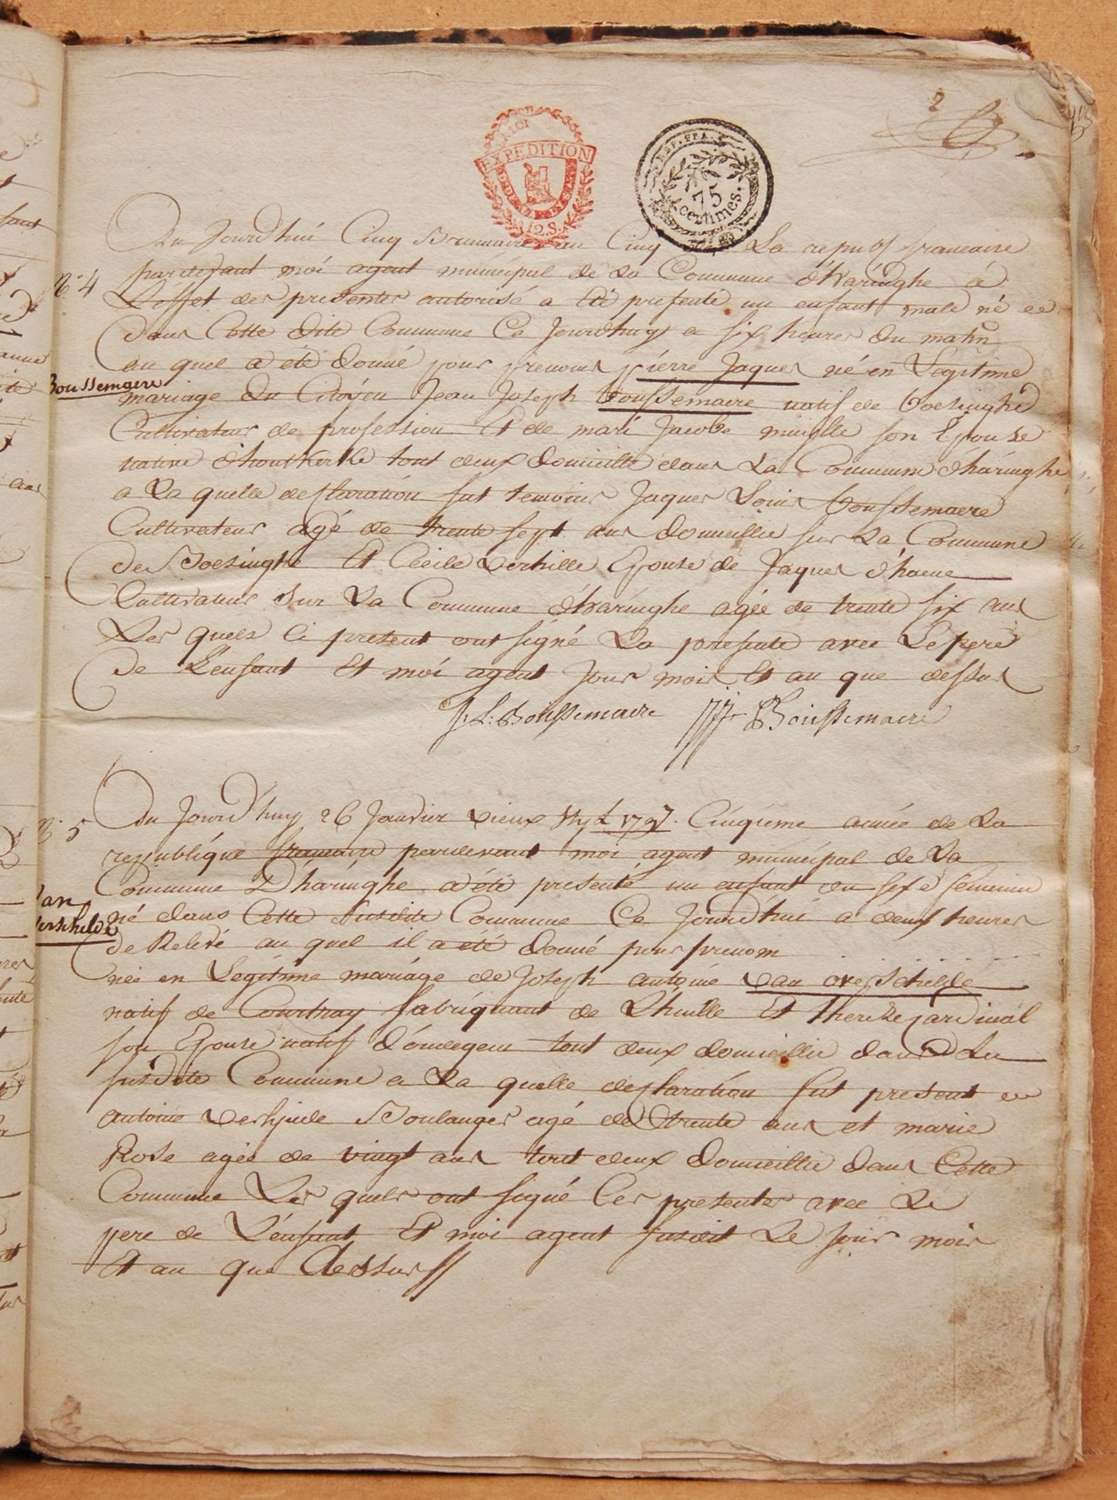 2
EXPEDITION
12.S.
REP. FRA.
75
centimes.
Du Jourd'hui Cinq Brumaire an Cinq La republ francaise
N.° 4
pardevant moi agent municipal de La Commune d'haringhe à
L'effet des presentes autorisé a été presenté un enfant male né
dans Cette dite Commune Ce Jourd'huy a six heures du matin
au quel a été donné pour prenoms pierre Jaques né en Légitime
Boussemaere
mariage du Citoÿen Jean Joseph Boussemaire natif de boesinghe
Cultivateur de profession Et de mari Jacobe son Epouse
native d'houtkerke tout deux domicillé dans La Commune d'haringhe
a La quelle desclaration fut temoins Jaques Louis Boussemaere
Cultivateur agé de trente sept ans domicillié sur La Commune
de Boesinghe Et Cecile Verhille Epouse de Jaques d'haene
Cultivateur Sur La Commune d'haringhe agée de trente six ans
Les quels Ci present ont signé La presente avec Le pere
de L'enfant Et moi agent Jour mois Et an que dessus
J: L: Boussemaere JJ Boussemaere
Du Jourd'huy 26 Janvier vieux Styl 1797. Cinqieme année de La
N.° 5
republique francaise pardevant moi agent municipal de La
Commune D'haringhe a été presenté un enfant du sexe feminin
Van
né dans Cette susdite Commune Ce Jourd'hui a deux heures
de Relevé au quel il a été donné pour prenom . . . . . .
née en Legitime mariage de Joseph antoine van overschelde
natif de Courtray fabriquant de L'huille Et therese jardinal
son Epouse natif d' tout deux domicillié dans La
susdite Commune a La quelle desclaration fut present
antoine Boulanger agé de trente ans et marie
Rose agée de vingt ans tout deux domicillié dans Cette
Commune Les quels ont signé Les presentes avec Le
pere de L'enfant Et moi agent susdit Le jour mois
Et an que dessus